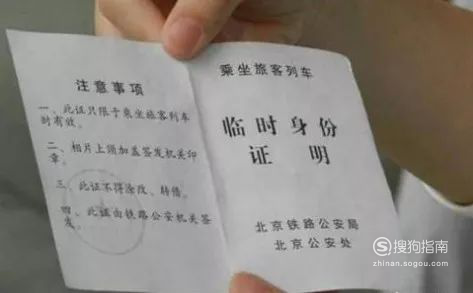 注意事项
一、此证只限于乘坐旅客列车
时有效。
二、相片上须加盖签发机关印
章。
三、此证不得涂改、转借。
四、此证由铁路公安机关签
发。
乘坐旅客列车
临时身份
证明
北京铁路公安局
北京公安处
搜狗指南
zhinan.sogou.com